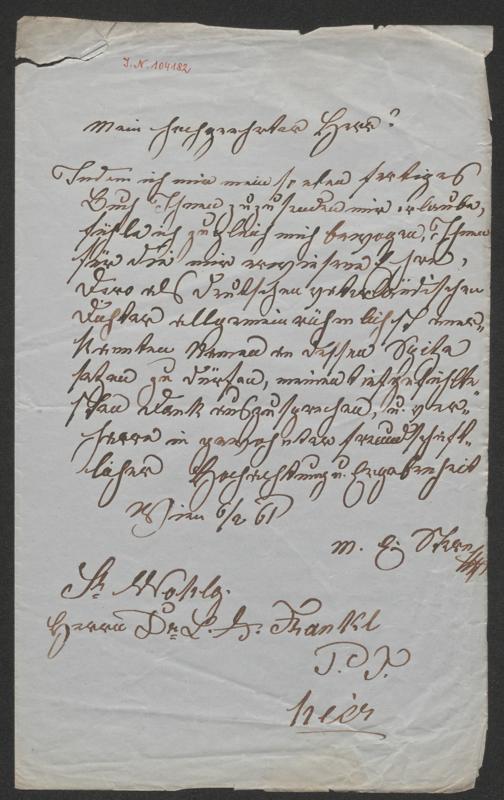 J. N. 104182
Mein hochgeehrter Herr!
Indem ich mir mein so eben fertiges
Buch Ihnen zuzusenden mir erlaube,
fühle ich zugleich mich bewogen, Ihnen
für die mir erwiesene Ehre,
Dero als deutschen vaterländischen
Dichter allgemein rühmlichst aner-
kannten Namen an dessen Spitze
setzen zu dürfen, meinen tiefgefühlte
sten Dank auszusprechen, u. ver-
harre in gewohnter freundschaft-
licher Hochachtung u. Ergebenheit
Wien 6/2 61
M. E. Stern
Sr Wohlg.
Herrn Dr. L. A. Frankl
P. T.
hier